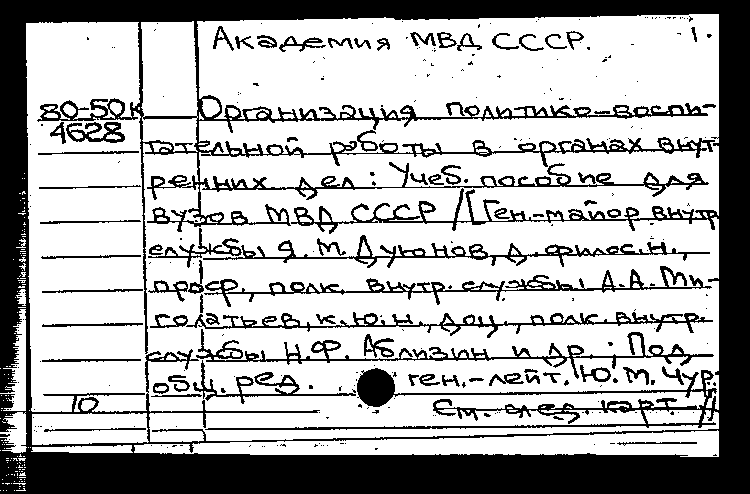 Академия МВД СССР.
1.
80-50к
4628
Организация политико-воспи-
тательной работы в органах внут-
ренних дел: Учеб. пособие для
вузов МВД СССР /[Ген.-майор внутр.
службы Я.М. Дуюнов, д. филос.н.,
проф., полк. внутр. службы А.А. Ми-
голатьев, к.ю.н., доц., полк. внутр.
службы Н.Ф. Аблизин и др.; Под
общ. ред. ген.-лейт. Ю.М. Чур-
10
См. след. карт. //